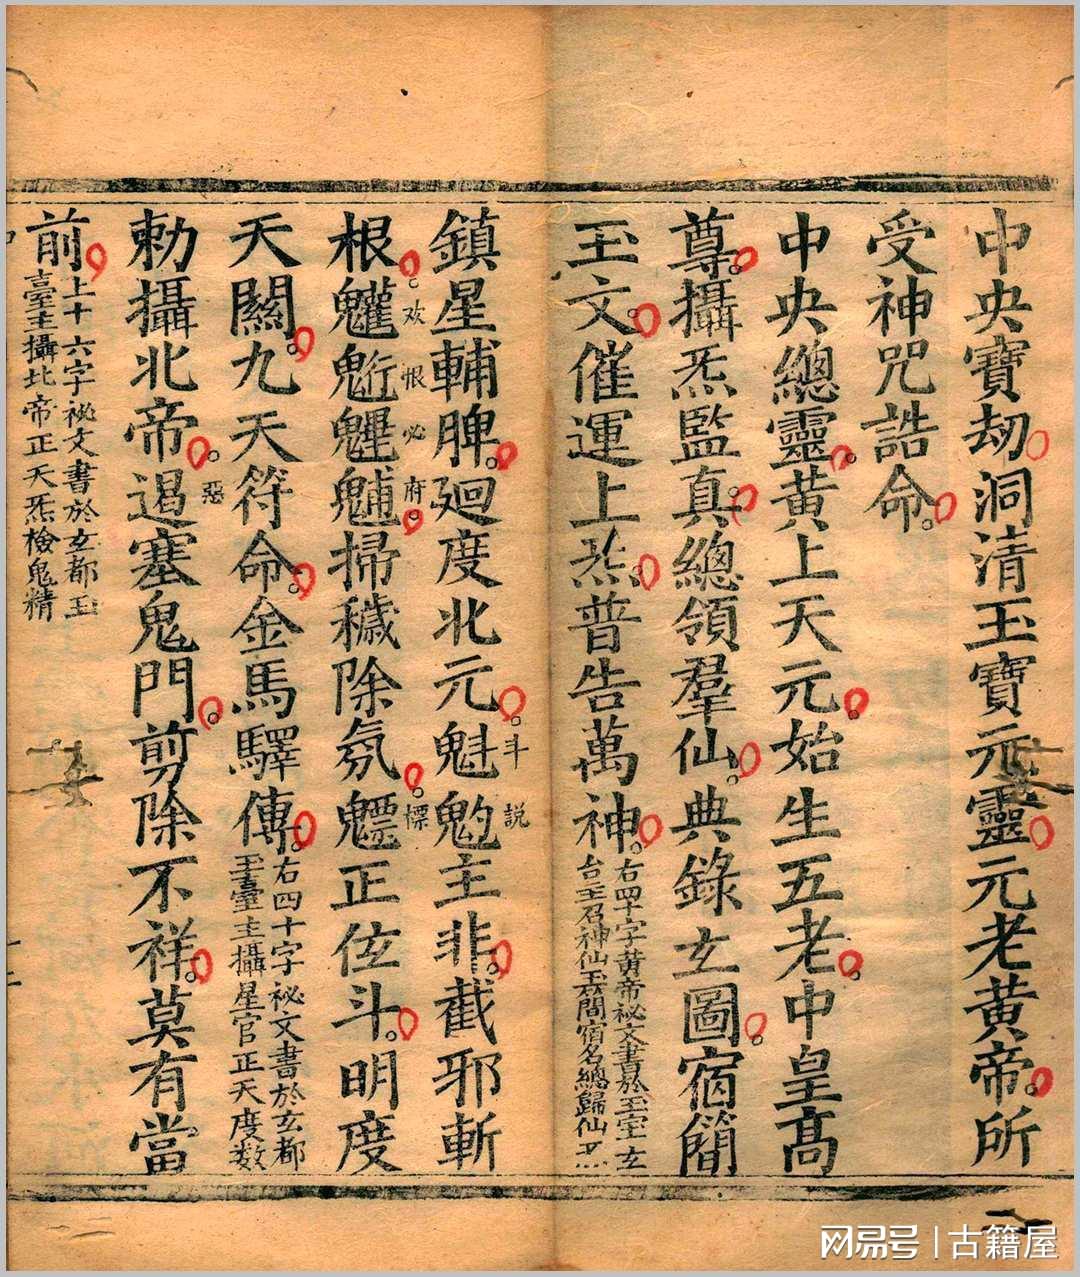 中央寶劫洞清玉寶元靈元老黃帝所
受神咒誥命
中央總靈黃上天元始生五老中皇高
尊攝炁監真總領羣仙典錄玄圖宿簡
玉文催運上炁普告萬神右四十字黃帝祕文書於玉室玄
台主召神仙玉簡宿名總歸仙炁
鎮星輔脾廻度北元魁魡主非截邪斬
斗說
根䰟魁魓魖掃穢除氛魒正位斗明度
欢恨必府慓
天關九天符命金馬驛傳右四十字祕文書於玄都
玉臺主攝星官正天度数
勅攝北帝遏塞鬼門剪除不祥莫有當
惡
前上十六字祕文書於玄都玉
臺主攝北帝正天炁檢鬼精
网易号 | 古籍屋